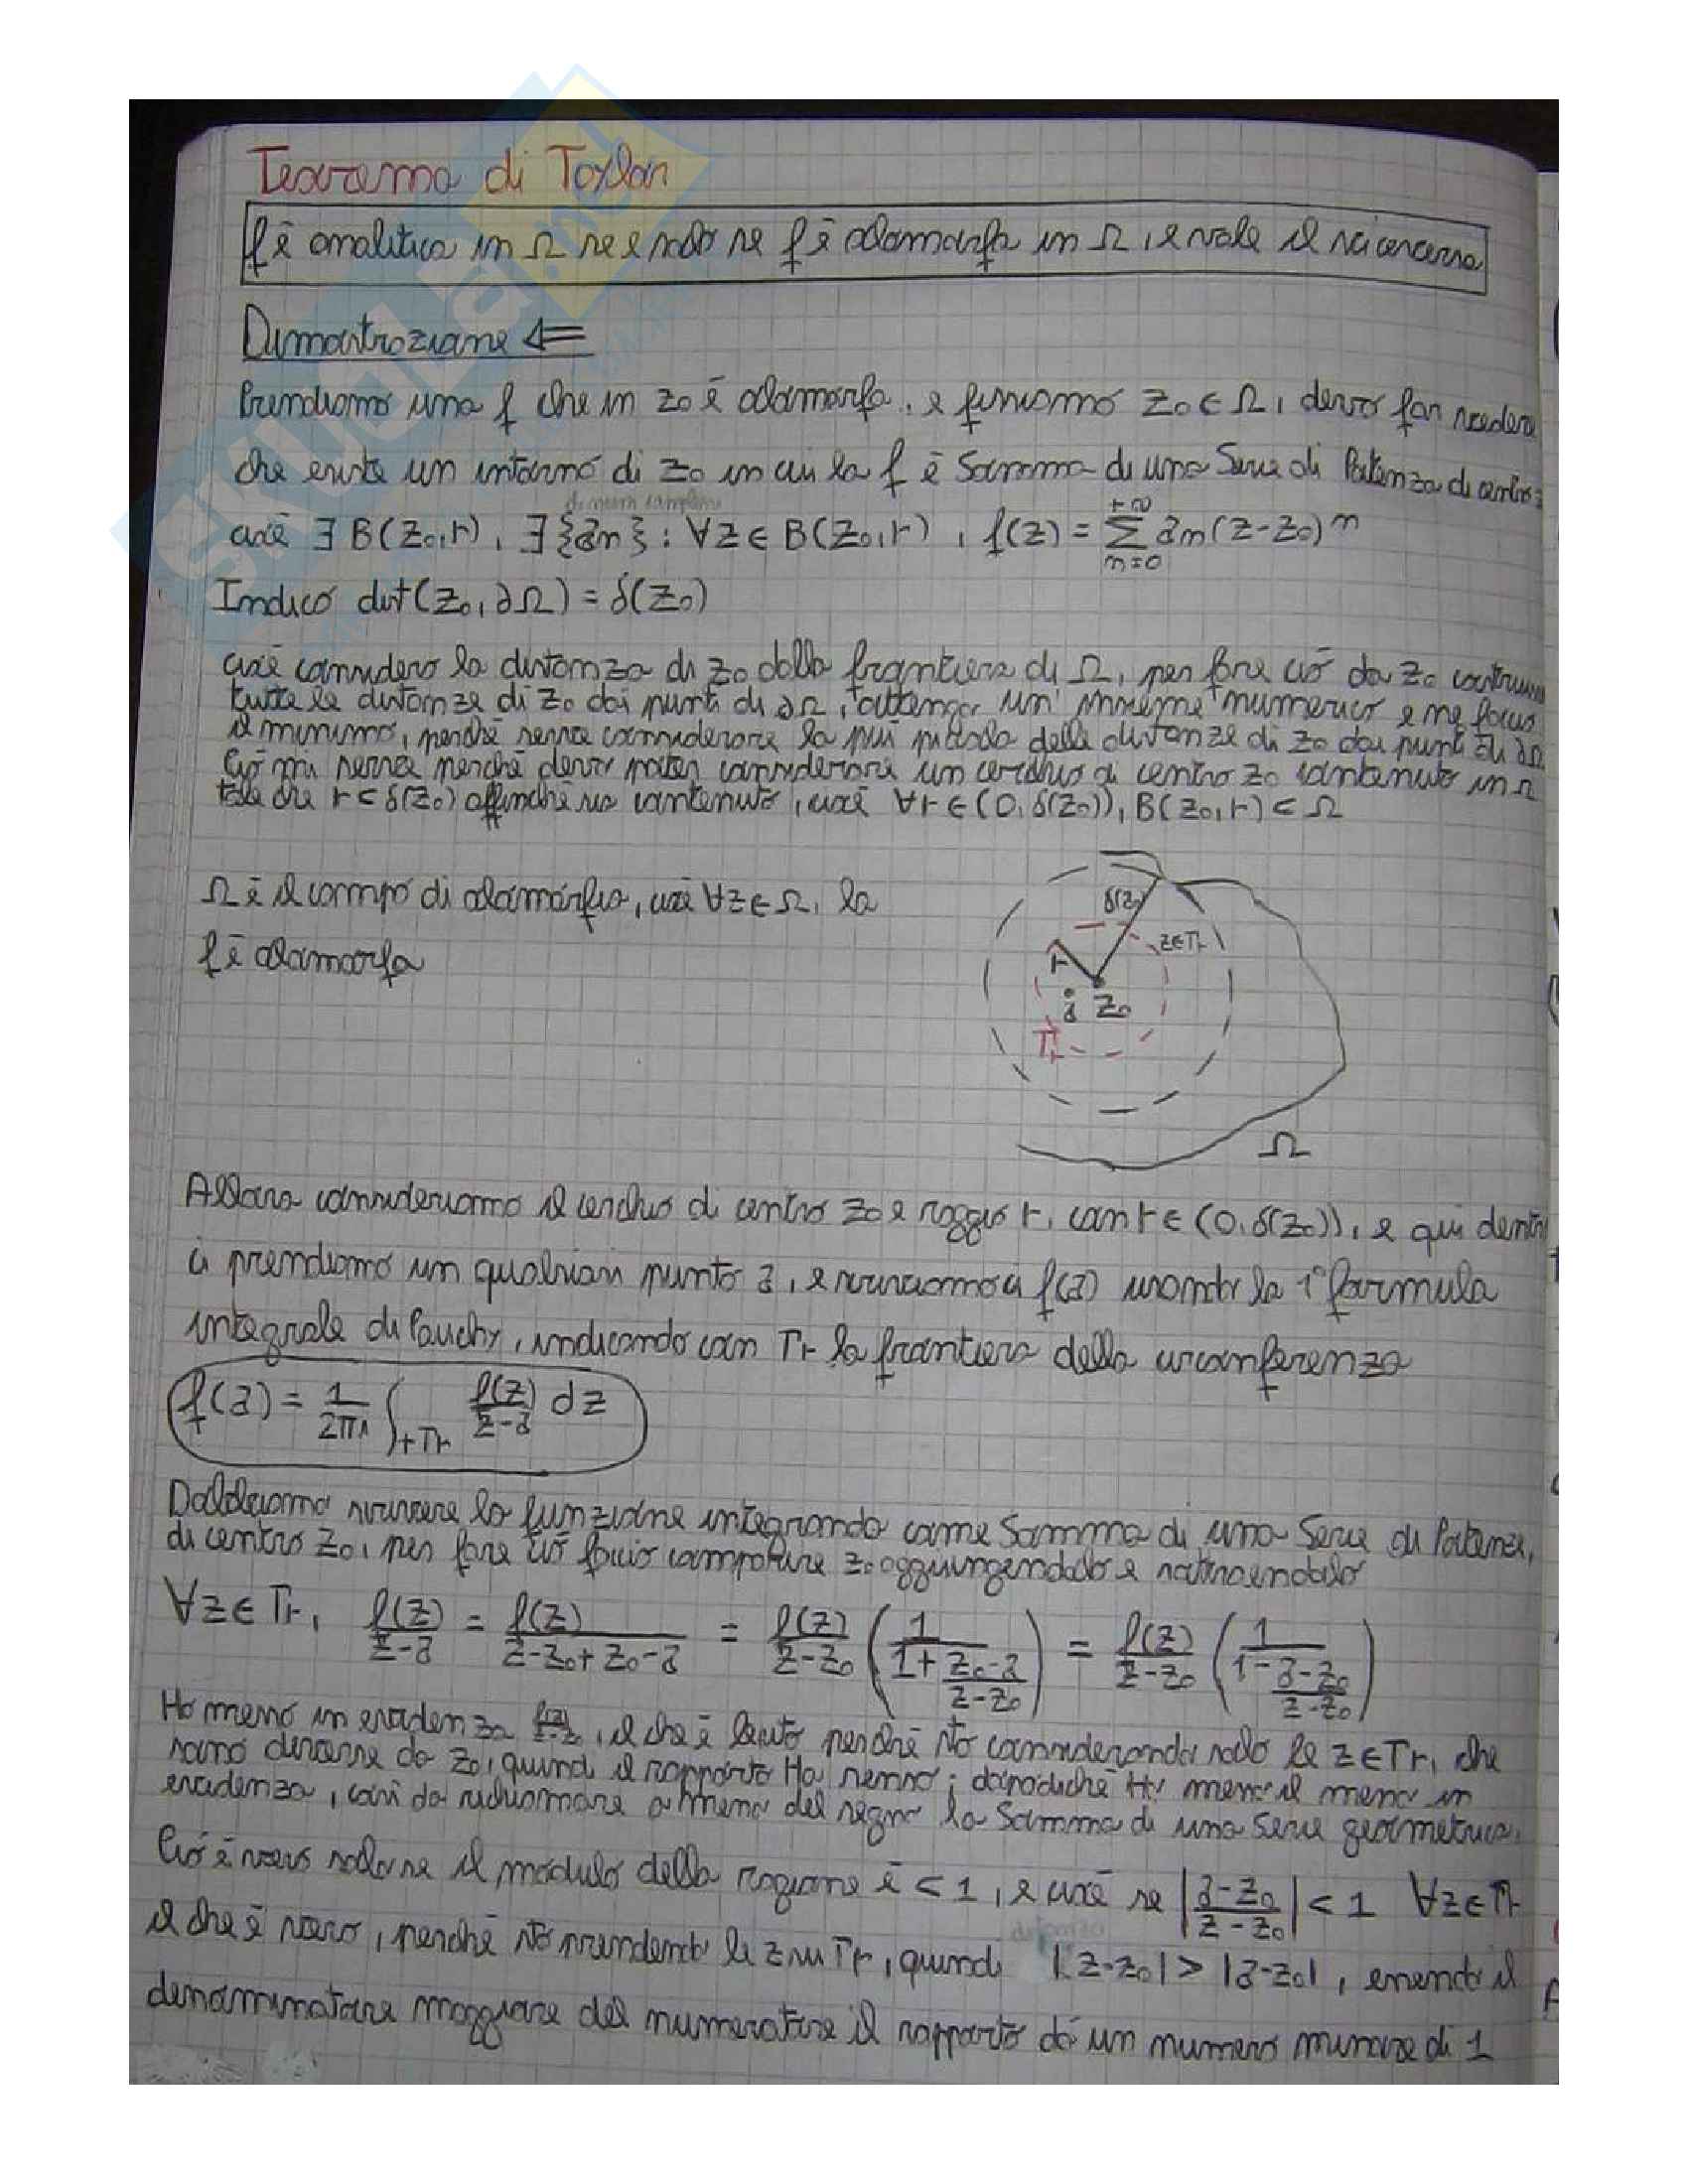 Teorema di Taylor
f è analitica in Ω se e solo se f è olomorfa in Ω, e vale il viceversa
Dimostrazione ⇐
Prendiamo una f che in z₀ è olomorfa, e fissiamo z₀ ∈ Ω, devo far vedere
che esiste un intorno di z₀ in cui la f è Somma di una Serie di Potenza di centro z
di numeri complessi
cioè ∃ B(z₀,r), ∃ {an} : ∀z ∈ B(z₀,r), f(z) = Σ_{n=0}^{+∞} an(z-z₀)ⁿ
Indico dist(z₀,∂Ω) = δ(z₀)
cioè considero la distanza di z₀ dalla frontiera di Ω, per fare ciò da z₀ costruisco
tutte le distanze di z₀ dai punti di ∂Ω, ottengo un insieme numerico e ne faccio
il minimo, perché serve considerare la più piccola delle distanze di z₀ dai punti di ∂Ω
Ciò mi serve perché devo poter considerare un cerchio di centro z₀ contenuto in Ω
tale che r < δ(z₀) affinché sia contenuto, cioè ∀r ∈ (0,δ(z₀)), B(z₀,r) ⊂ Ω
Ω è il campo di olomorfia, cioè ∀z ∈ Ω, la
f è olomorfa
δ(z₀)
z∈Tr
r
a z₀
Tr
Ω
Allora consideriamo il cerchio di centro z₀ e raggio r, con r ∈ (0,δ(z₀)), e qui dentro
ci prendiamo un qualsiasi punto a, e scriviamoci f(a) usando la 1° formula
integrale di Cauchy, indicando con Tr la frontiera della circonferenza
f(a) = 1/(2πi) ∫_{+Tr} f(z)/(z-a) dz
Dobbiamo scrivere la funzione integranda come Somma di una Serie di Potenze,
di centro z₀, per fare ciò faccio comparire z₀ aggiungendolo e sottraendolo
∀z ∈ Tr, f(z)/(z-a) = f(z)/(z-z₀+z₀-a) = f(z)/(z-z₀) (1/(1+(z₀-a)/(z-z₀))) = f(z)/(z-z₀) (1/(1-(a-z₀)/(z-z₀)))
Ho messo in evidenza f(z)/(z-z₀), il che è lecito perché sto considerando solo le z∈Tr, che
sono diverse da z₀, quindi il rapporto Ha senso; dopodiché Ho messo il meno in
evidenza, così da richiamare a meno del segno la Somma di una Serie geometrica.
Ciò è vero solo se il modulo della ragione è < 1, e cioè se |(a-z₀)/(z-z₀)| < 1 ∀z∈Tr
distanza
il che è vero, perché sto prendendo le z su Tr, quindi |z-z₀| > |a-z₀|, essendo il
denominatore maggiore del numeratore il rapporto dà un numero minore di 1